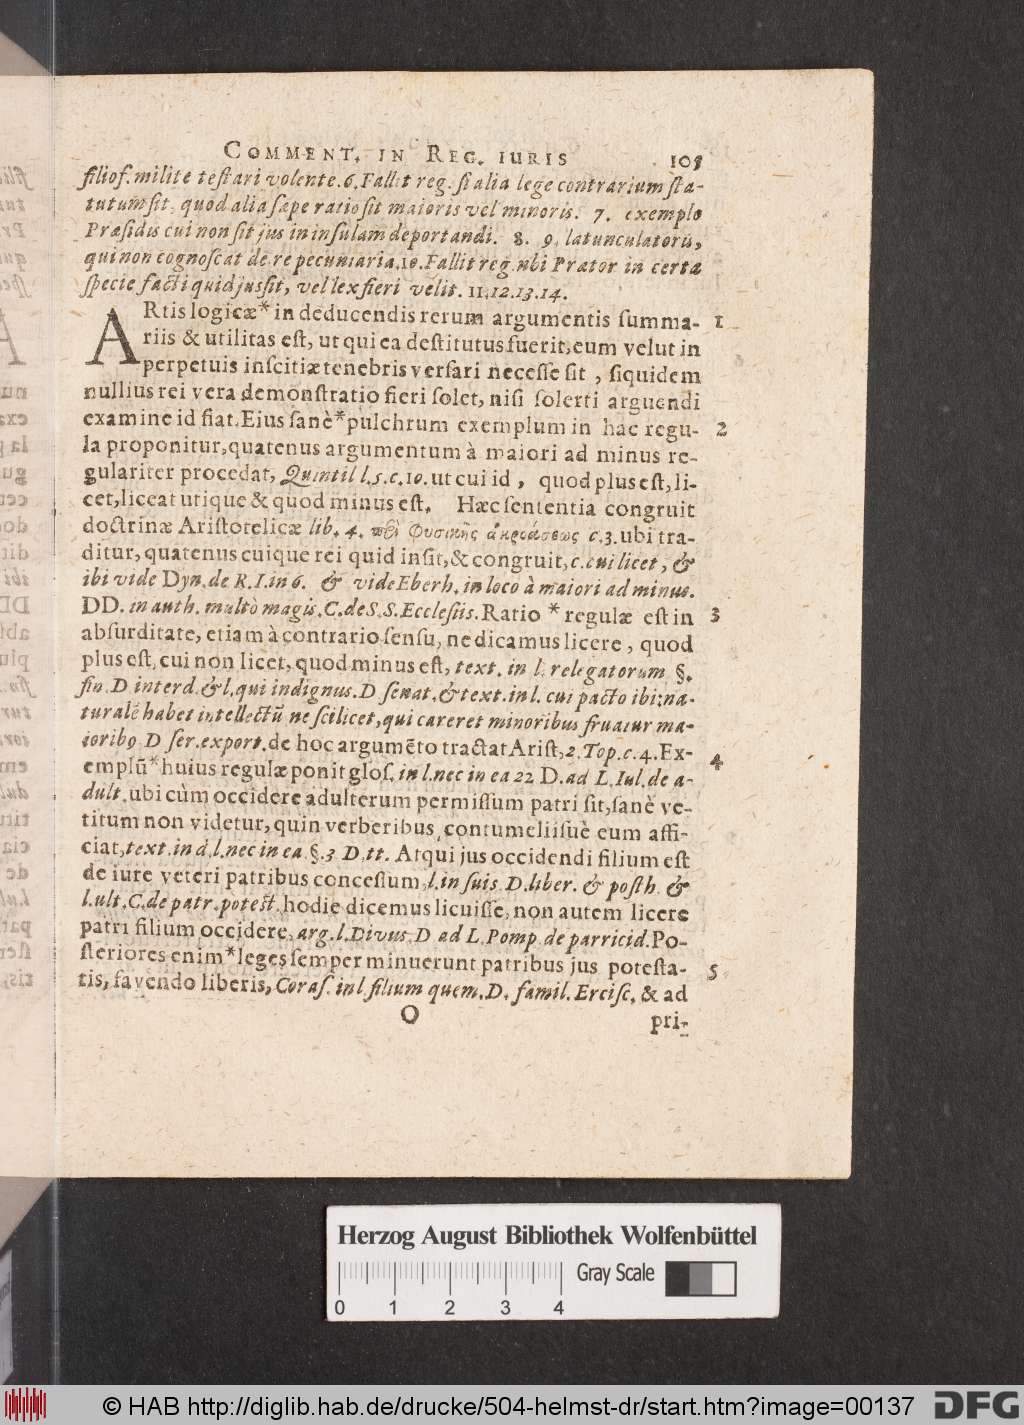 COMMENT. IN REG. IURIS 105
filiof. milite testari volente. 6. Fallit reg. si alia lege contrarium sta-
tutum sit, quod alia sæpe ratio sit maioris vel minoris. 7. exemplo
Præsidis cui non sit jus in insulam deportandi. 8. 9. latunculatoris,
qui non cognoscat de re pecuniaria. 10. Fallit reg. ubi Prætor in certa
specie facti quid jussit, vel lex fieri velit. 11. 12. 13. 14.
ARtis logicæ* in deducendis rerum argumentis summa- 1
riis & utilitas est, ut qui ea destitutus fuerit, eum velut in
perpetuis inscitiæ tenebris versari necesse sit, siquidem
nullius rei vera demonstratio fieri solet, nisi solerti arguendi
examine id fiat. Eius sanè* pulchrum exemplum in hac regu- 2
la proponitur, quatenus argumentum à maiori ad minus re-
gulariter procedat, Quintil l. 5. c. 10. ut cui id, quod plus est, li-
cet, liceat utique & quod minus est. Hæc sententia congruit
doctrinæ Aristotelicæ lib. 4. περὶ φυσικῆς ἀκροάσεως c. 3. ubi tra-
ditur, quatenus cuique rei quid insit, & congruit, c. cui licet, &
ibi vide Dyn. de R. I. in 6. & vide Eberh. in loco à maiori ad minus.
DD. in auth. multò magis. C. de S. S. Ecclesiis. Ratio * regulæ est in 3
absurditate, etiam à contrario sensu, ne dicamus licere, quod
plus est, cui non licet, quod minus est, text. in l. relegatorum §.
fin. D interd. & l. qui indignus. D senat. & text. in l. cui pacto ibi: na-
turalē habet intellectū ne scilicet, qui careret minoribus fruatur ma-
ioribꝰ D ser. export. de hoc argumēto tractat Arist, 2. Top. c. 4. Ex-
emplū* huius regulæ ponit glos. in l. nec in ea 22 D. ad L. Iul. de a- 4
dult. ubi cùm occidere adulterum permissum patri sit, sanè ve-
titum non videtur, quin verberibus, contumeliisuè eum affi-
ciat, text. in d. l. nec in ea §. 3 D. tt. Atqui jus occidendi filium est
de iure veteri patribus concessum, l. in suis D. liber. & posth. &
l. ult. C. de patr. potest. hodie dicemus licuisse, non autem licere
patri filium occidere, arg. l. Divus. D ad L. Pomp. de parricid. Po-
steriores enim* leges semper minuerunt patribus jus potesta- 5
tis, favendo liberis, Coras. in l filium quem. D. famil. Ercisc. & ad
O pri-
Herzog August Bibliothek Wolfenbüttel
Gray Scale
0 1 2 3 4
© HAB http://diglib.hab.de/drucke/504-helmst-dr/start.htm?image=00137 DFG